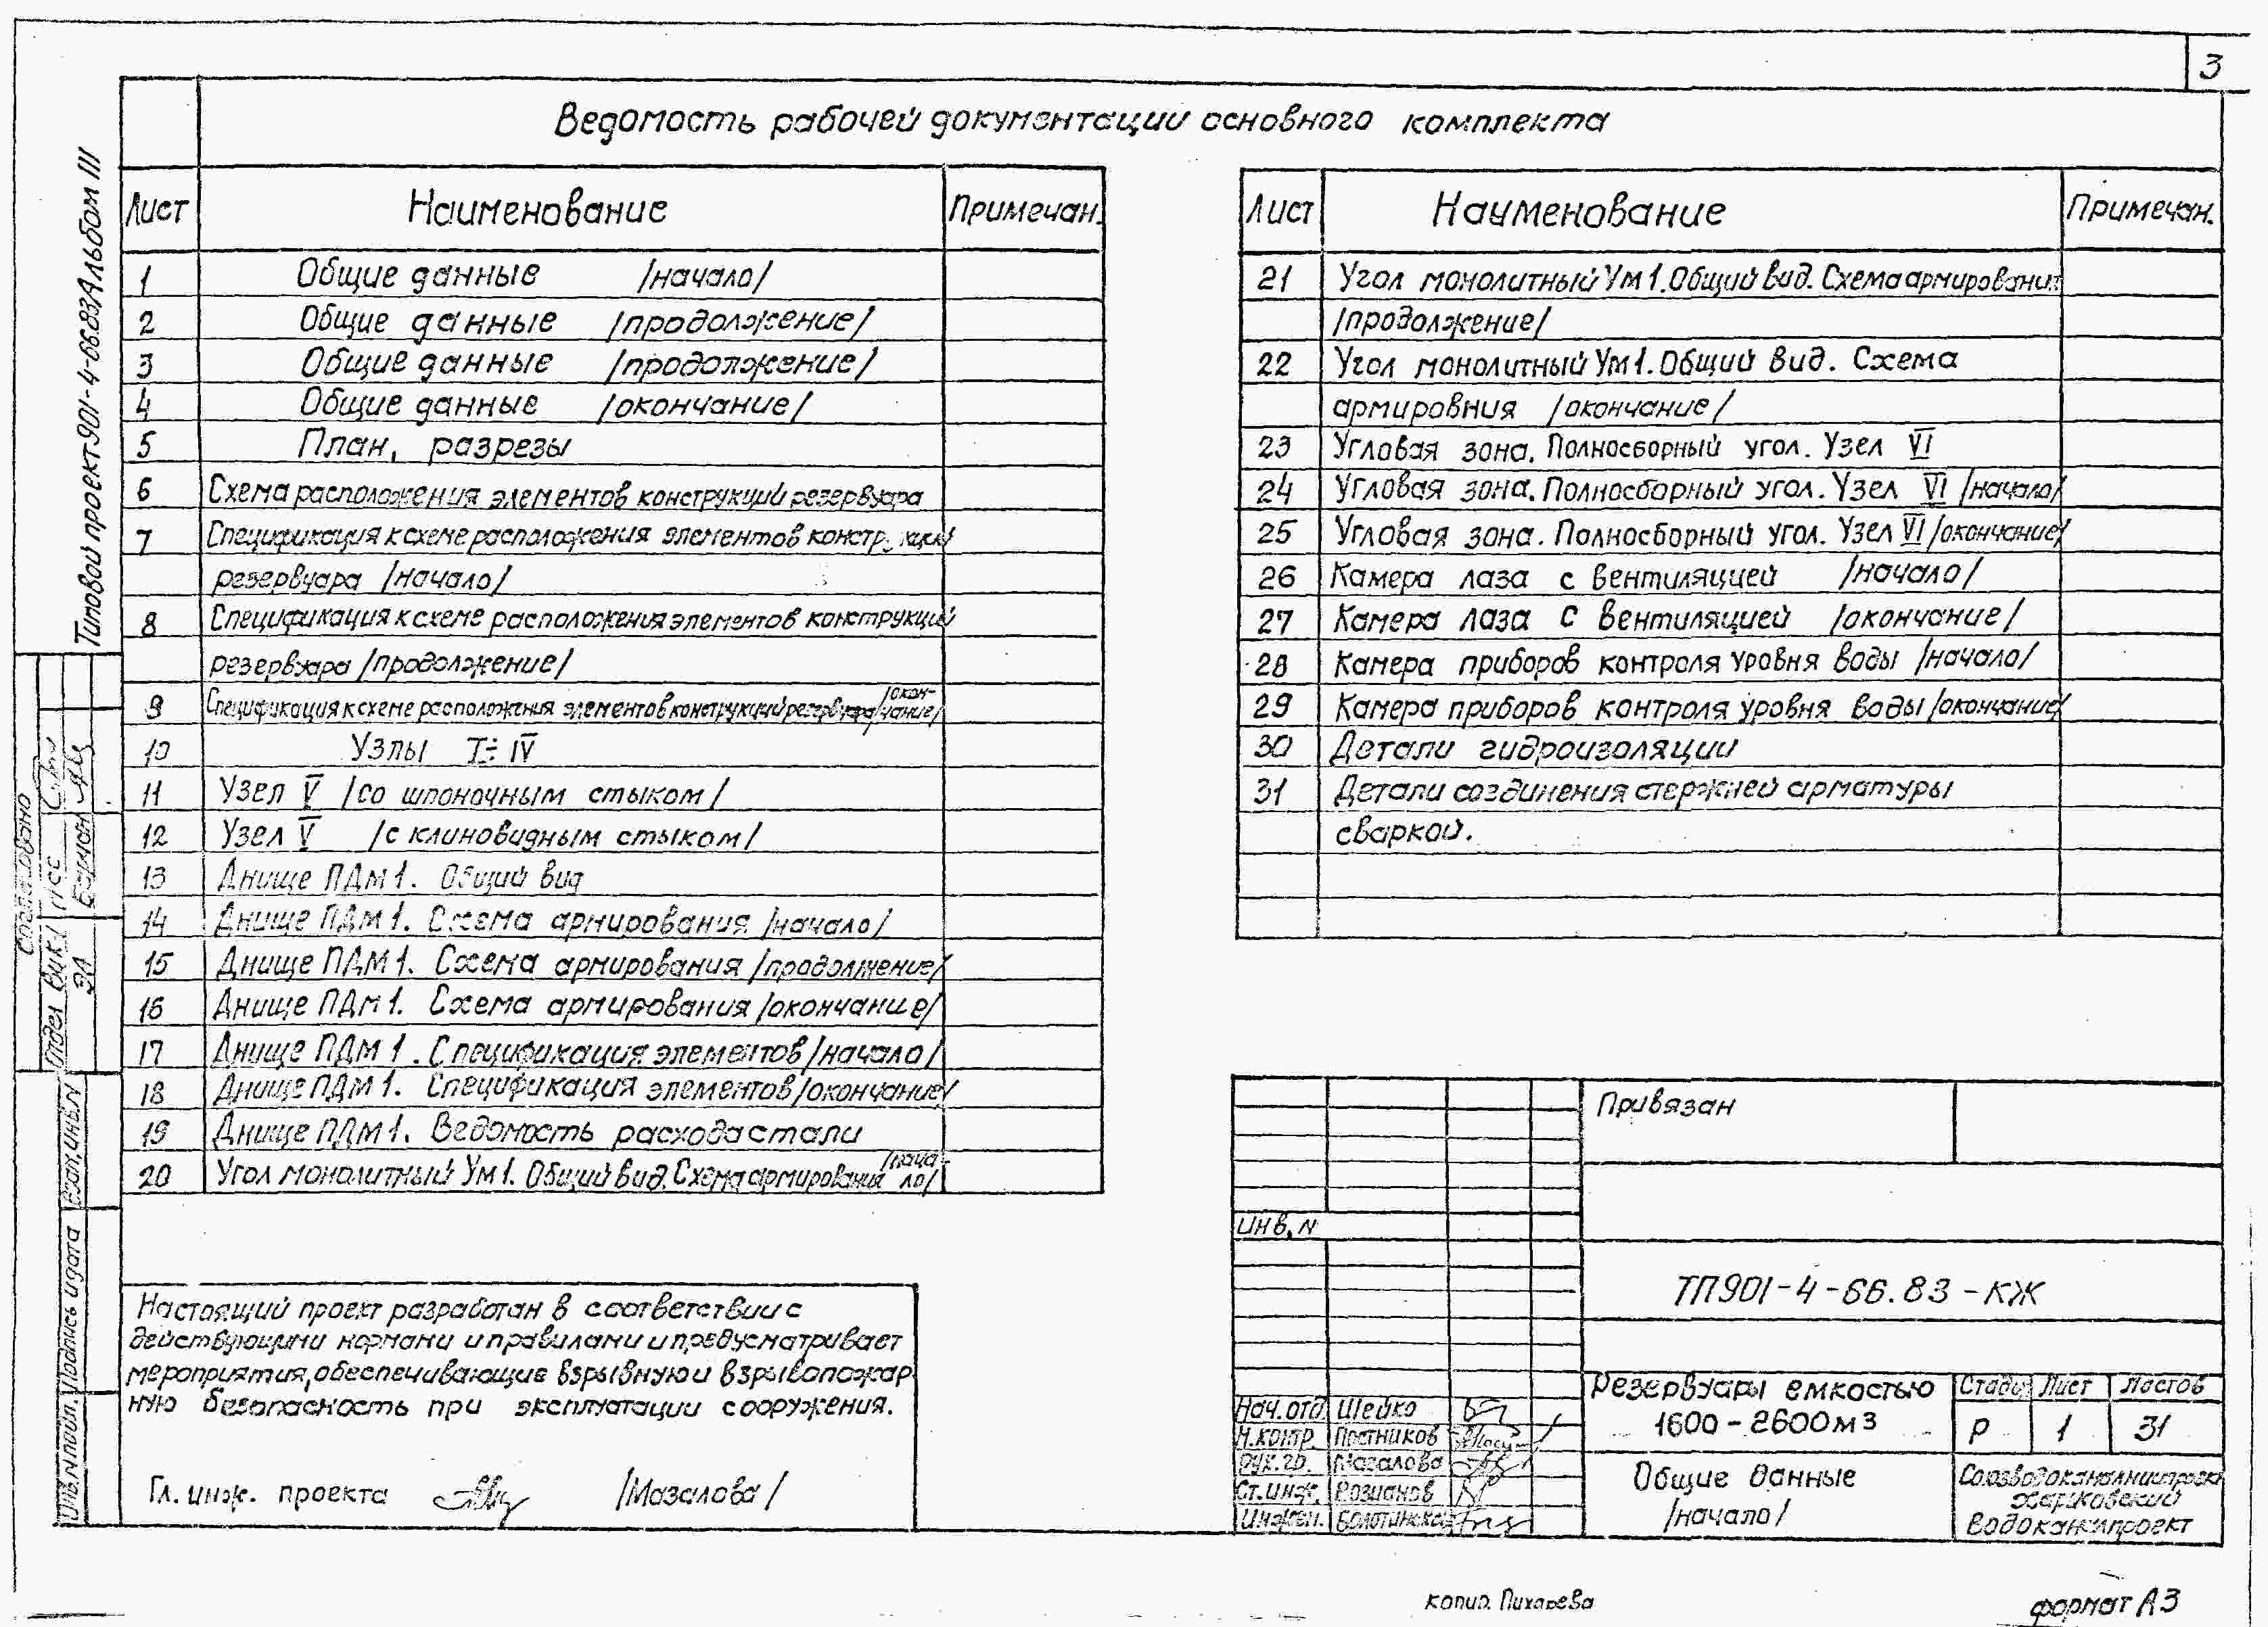 3
Ведомость рабочей документации основного комплекта
Типовой проект 901-4-66.83 Альбом III
Лист Наименование Примечан.
1 Общие данные /начало/
2 Общие данные /продолжение/
3 Общие данные /продолжение/
4 Общие данные /окончание/
5 План, разрезы
6 Схема расположения элементов конструкций резервуара
7 Спецификация к схеме расположения элементов конструкций
резервуара /начало/
8 Спецификация к схеме расположения элементов конструкций
резервуара /продолжение/
9 Спецификация к схеме расположения элементов конструкций резервуара /окон-
чание/
10 Узлы I÷IV
11 Узел V /со шпоночным стыком/
12 Узел V /с клиновидным стыком/
13 Днище ПДм1. Общий вид
14 Днище ПДм1. Схема армирования /начало/
15 Днище ПДм1. Схема армирования /продолжение/
16 Днище ПДм1. Схема армирования /окончание/
17 Днище ПДм1. Спецификация элементов /начало/
18 Днище ПДм1. Спецификация элементов /окончание/
19 Днище ПДм1. Ведомость расхода стали
20 Угол монолитный Ум1. Общий вид. Схема армирования /нача-
ло/
Лист Наименование Примечан.
21 Угол монолитный Ум1. Общий вид. Схема армирования
/продолжение/
22 Угол монолитный Ум1. Общий вид. Схема
армировния /окончание/
23 Угловая зона. Полносборный угол. Узел VI
24 Угловая зона. Полносборный угол. Узел VI /начало/
25 Угловая зона. Полносборный угол. Узел VI /окончание/
26 Камера лаза с вентиляцией /начало/
27 Камера лаза с вентиляцией /окончание/
28 Камера приборов контроля уровня воды /начало/
29 Камера приборов контроля уровня воды /окончание/
30 Детали гидроизоляции
31 Детали соединения стержней арматуры
сваркой.
Согласовано
Отдел ВиК-1 ПСС
ЭА
Взам. инв. N
Подпись и дата
Инв. N подл.
Настоящий проект разработан в соответствии с
действующими нормами и правилами и предусматривает
мероприятия, обеспечивающие взрывную и взрывопожар
ную безопасность при эксплуатации сооружения.
Гл. инж. проекта /Мазалова/
Привязан
Инв. N
ТП901-4-66.83-КЖ
Резервуары емкостью
1600-2600м3
Стадия Лист Листов
Р 1 31
Нач. отд Шейко
Н. контр. Постников
Рук. гр. Мазалова
Ст. инж. Розианов
Инжен.
Общие данные
/начало/
Союзводоканалниипроект
Харьковский
Водоканалпроект
копир. Пихарева
формат А3